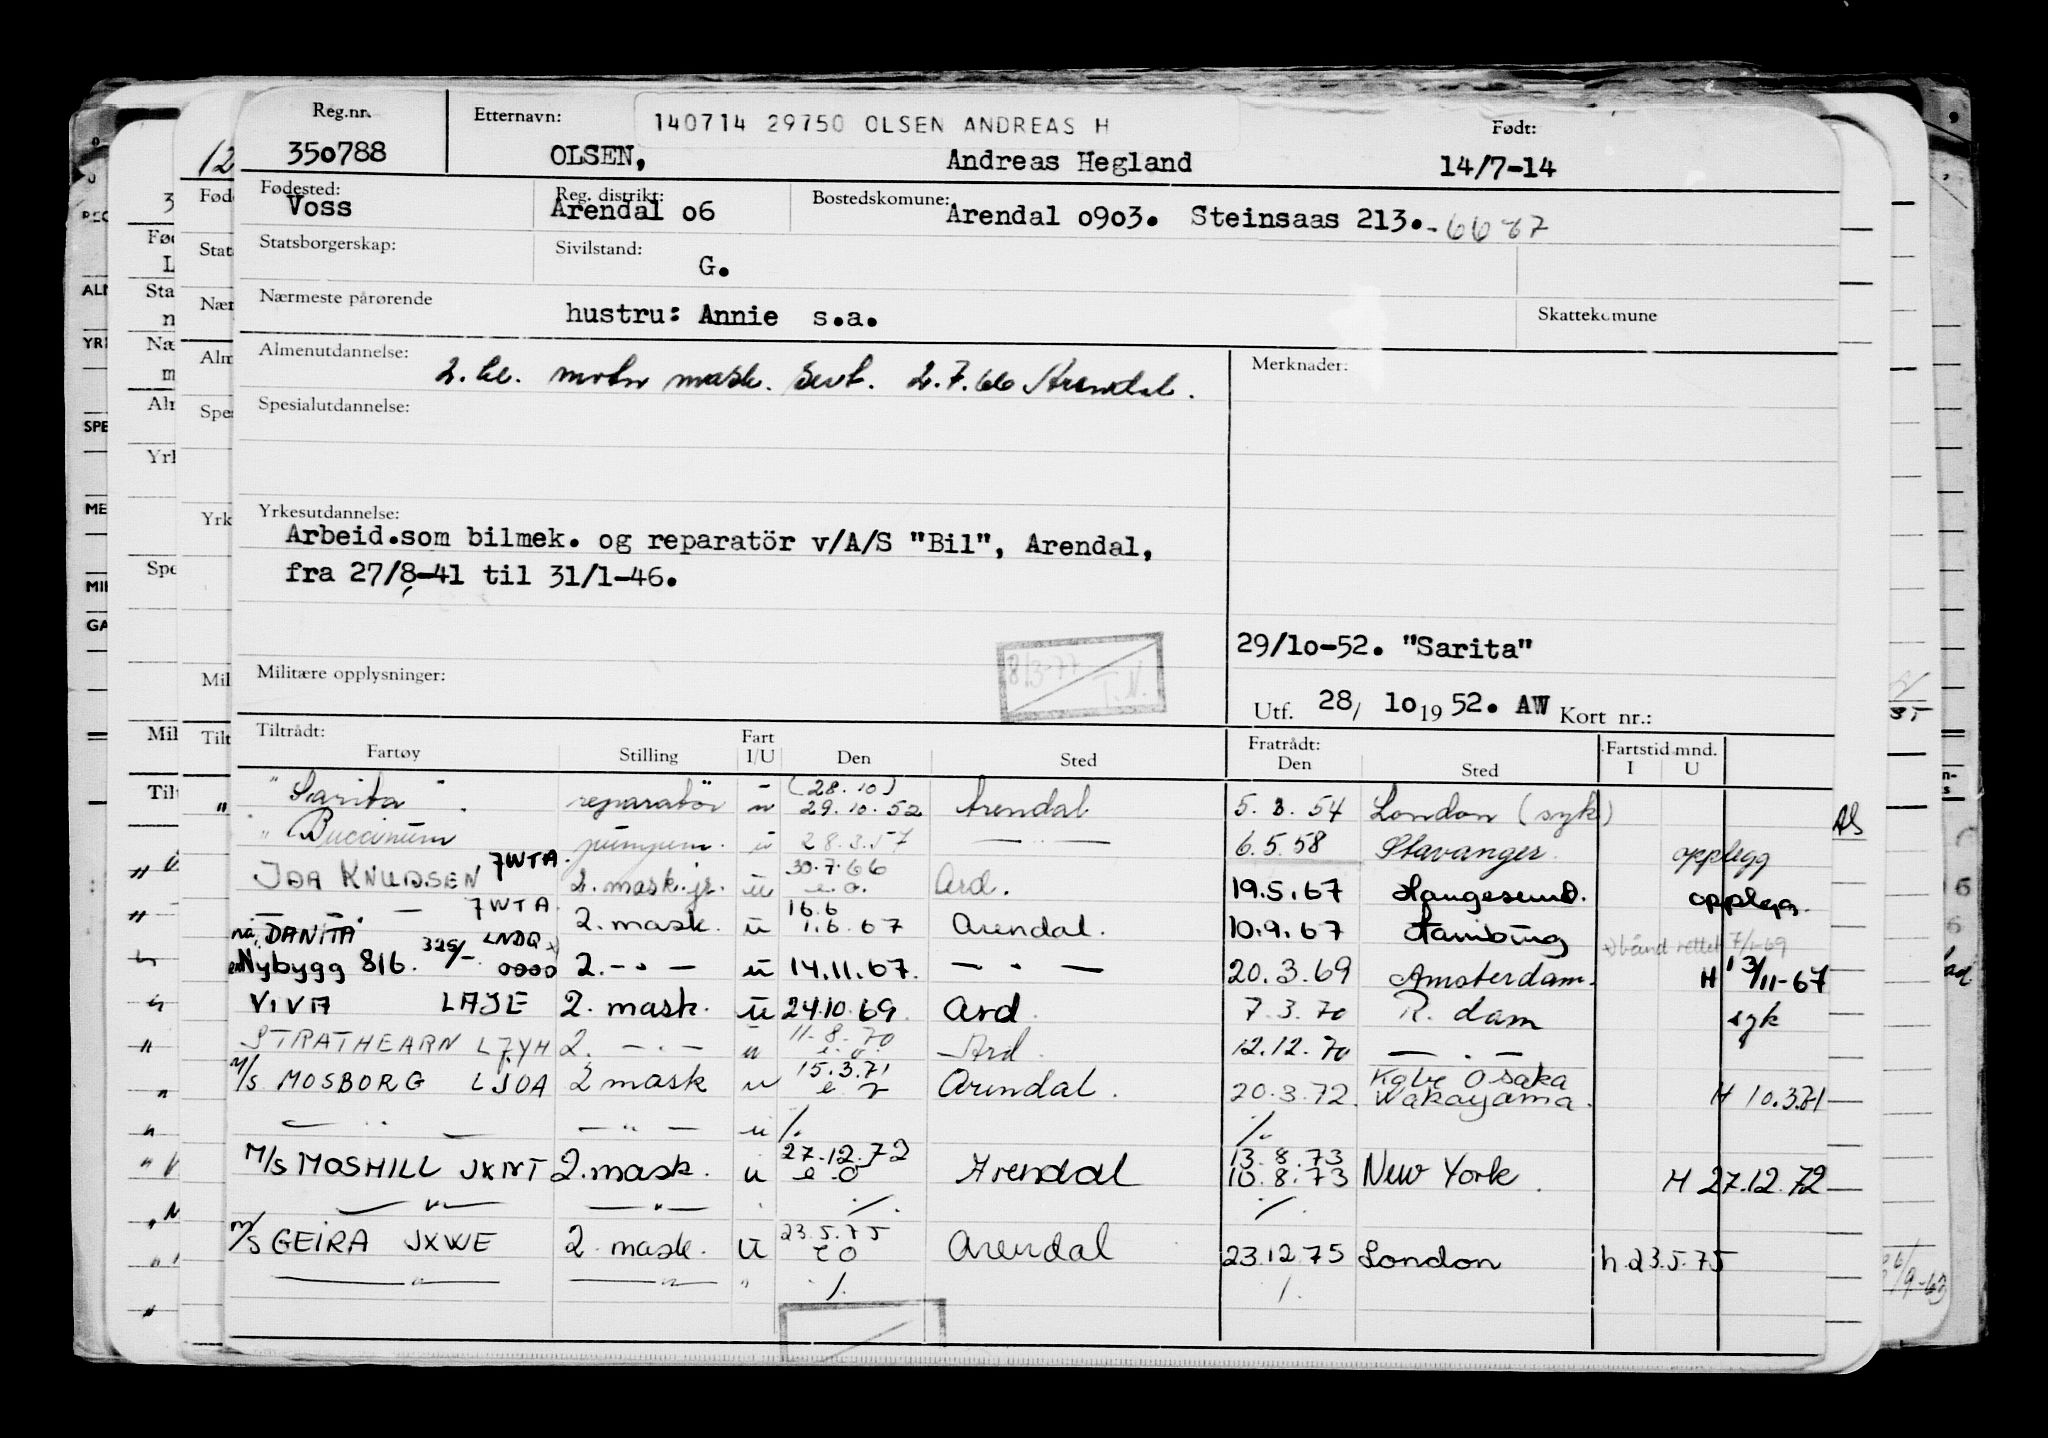 Reg.nr. Etternavn: 140714 29750 OLSEN ANDREAS H Født:
350788 OLSEN, Andreas Hegland 14/7-14
Fødested: Reg. distrikt: Bostedskomune:
Voss Arendal 06 Arendal 0903. Steinsaas 213.
Statsborgerskap: Sivilstand: G.
Nærmeste pårørende hustru: Annie s.a. Skattekomune
Almenutdannelse: Merknader:
2. kl. motor mask. sert. 2.7.66 Arendal.
Spesialutdannelse:
Yrkesutdannelse:
Arbeid.som bilmek. og reparatör v/A/S "Bil", Arendal,
fra 27/8-41 til 31/1-46.
29/10-52. "Sarita"
Militære opplysninger: 8/3-77 T.N.
Utf. 28/ 10 19 52. AW Kort nr.:
Tiltrådt: Fart Fratrådt: Fartstid mnd.
Fartøy Stilling I/U Den Sted Den Sted I U
(28.10)
"Sarita". reparatör u 29.10.52 Arendal 5.3.54 London (syk)
" Buccinum pumpem. u 28.3.57 — " — 6.5.58 Stavanger. opplegg
30.7.66
" IDA KNUDSEN 7WTA. 2. mask. jr. u e.o. Ard. 19.5.67 Haugesund. opplegg.
16.6
— " — 7WTA 2. mask. u 1.6.67 Arendal. 10.9.67 Hamburg
nå DANITA LNDQ
Nybygg 816. 325/- 0000 2. — " — u 14.11.67. — " — 20.3.69 Amsterdam. H 13/11-67
VIVA LAJE 2. mask. u 24.10.69. Ard. 7.3.70 R.dam syk
11.8.70
STRATHEARN LJYH 2. — " — u e.o. Ard. 12.12.70 — " —
15.3.71 Kobe Osaka
M/S MOSBORG LJOA 2 mask u Arendal. 20.3.72. Wakayama. H 10.3.71
— " — — " — u ./. ./.
27.12.72 13.8.73
M/S MOSHILL JXNT 2. mask. u e.o Arendal 10.8.73 New York. H 27.12.72
— " — — " — ./. ./.
23.5.75
M/S GEIRA JXWE 2. mask. u eo Arendal 23.12.75 London h.23.5.75
— " — — " — " ./. ./.